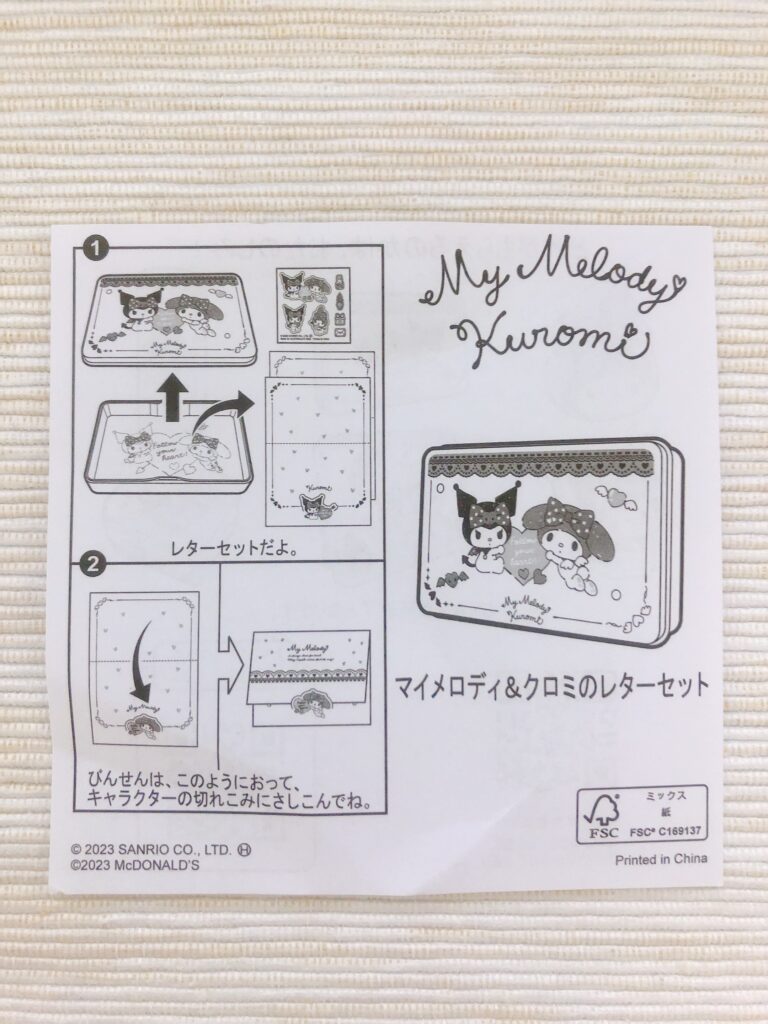 1
My Melody
Kuromi
Follow
your
heart!
Kuromi
レターセットだよ。
2
My Melody
My Melody
びんせんは、このようにおって、
キャラクターの切れこみにさしこんでね。
© 2023 SANRIO CO., LTD. Ⓗ
©2023 McDONALD'S
My Melody
Kuromi
Follow
your
heart!
My Melody
Kuromi
マイメロディ&クロミのレターセット
FSC
ミックス
紙
FSC® C169137
Printed in China